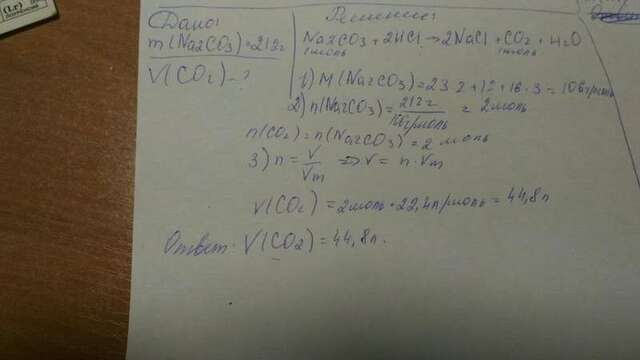 (Lr)
Дано:
m(Na2CO3)=212г
V(CO2)-?
Решение:
Na2CO3+2HCl→2NaCl+CO2+H2O
1моль 1моль
1) M(Na2CO3)=23·2+12+16·3=106г/моль
2) n(Na2CO3)=212г/106г/моль=2моль
n(CO2)=n(Na2CO3)=2 моль
3) n=V/Vm ⇒ V=n·Vm
V(CO2)=2моль·22,4л/моль=44,8л
Ответ: V(CO2)=44,8л.